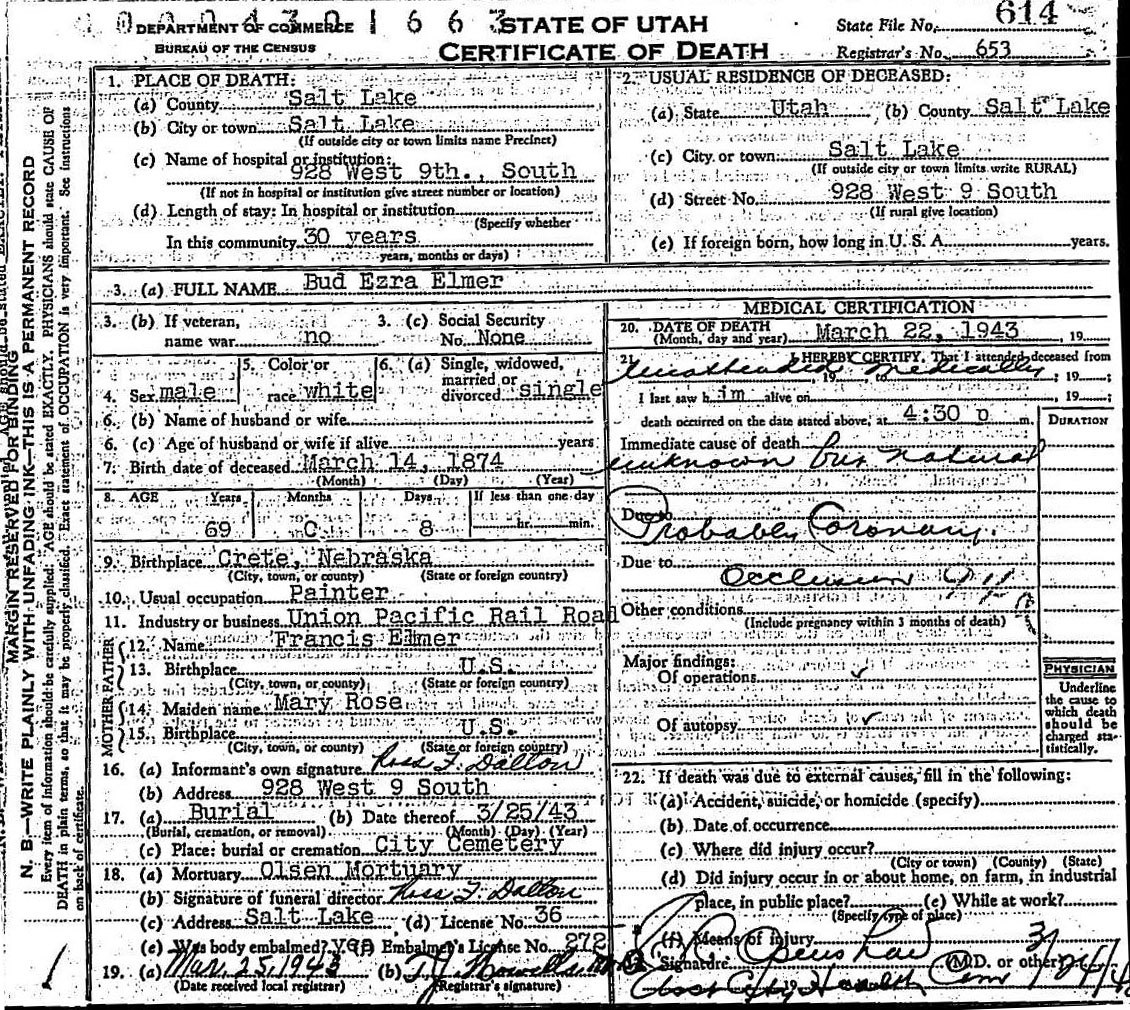 DEPARTMENT OF COMMERCE
BUREAU OF THE CENSUS
1 6 6 3
STATE OF UTAH
CERTIFICATE OF DEATH
State File No. 614
Registrar's No. 653
MARGIN RESERVED FOR BINDING
N. B—WRITE PLAINLY WITH UNFADING INK—THIS IS A PERMANENT RECORD
Every item of information should be carefully supplied. AGE should be stated EXACTLY. PHYSICIANS should state CAUSE OF
DEATH in plain terms, so that it may be properly classified. Exact statement of OCCUPATION is very important. See instructions
on back of certificate.
1. PLACE OF DEATH:
(a) County Salt Lake
(b) City or town Salt Lake
(If outside city or town limits name Precinct)
(c) Name of hospital or institution:
928 West 9th., South
(If not in hospital or institution give street number or location)
(d) Length of stay: In hospital or institution
(Specify whether
In this community 30 years
years, months or days)
2. USUAL RESIDENCE OF DECEASED:
(a) State Utah (b) County Salt Lake
(c) City or town Salt Lake
(If outside city or town limits write RURAL)
(d) Street No. 928 West 9 South
(If rural give location)
(e) If foreign born, how long in U. S. A. years.
3. (a) FULL NAME Bud Ezra Elmer
3. (b) If veteran,
name war no
3. (c) Social Security
No. None
4. Sex male
5. Color or
race white
6. (a) Single, widowed,
married or
divorced single
6. (b) Name of husband or wife
6. (c) Age of husband or wife if alive years
7. Birth date of deceased March 14, 1874
(Month) (Day) (Year)
8. AGE Years Months Days If less than one day
69 0 8 hr. min.
9. Birthplace Crete, Nebraska
(City, town, or county) (State or foreign country)
10. Usual occupation Painter
11. Industry or business Union Pacific Rail Road
FATHER
12. Name Francis Elmer
13. Birthplace U.S.
(City, town, or county) (State or foreign country)
MOTHER
14. Maiden name Mary Rose
15. Birthplace U.S.
(City, town, or county) (State or foreign country)
16. (a) Informant's own signature Ross F. Dalton
(b) Address 928 West 9 South
17. (a) Burial (b) Date thereof 3/25/43
(Burial, cremation, or removal) (Month) (Day) (Year)
(c) Place: burial or cremation City Cemetery
18. (a) Mortuary Olsen Mortuary
(b) Signature of funeral director Ross F. Dalton
(c) Address Salt Lake (d) License No. 36
(e) Was body embalmed? yes Embalmer's License No. 272
19. (a) Mar. 25, 1943 (b) T. J. Howells
(Date received local registrar) (Registrar's signature)
MEDICAL CERTIFICATION
20. DATE OF DEATH
(Month, day and year) March 22, 1943, 19
21. I HEREBY CERTIFY, That I attended deceased from
Unattended Medically
, 19 , to ; 19 ;
I last saw h im alive on , 19 ;
death occurred on the date stated above, at 4:30 p m.
DURATION
Immediate cause of death
unknown but natural
Due to
Probably Coronary
Due to
Occlusion
Other conditions
(Include pregnancy within 3 months of death)
Major findings:
Of operations ✓
Of autopsy ✓
PHYSICIAN
Underline
the cause to
which death
should be
charged sta-
tistically.
22. If death was due to external causes, fill in the following:
(a) Accident, suicide, or homicide (specify)
(b) Date of occurrence
(c) Where did injury occur?
(City or town) (County) (State)
(d) Did injury occur in or about home, on farm, in industrial
place, in public place? (e) While at work?
(Specify type of place)
(f) Means of injury
Signature Openshaw (M.D. or other)
City Health Com